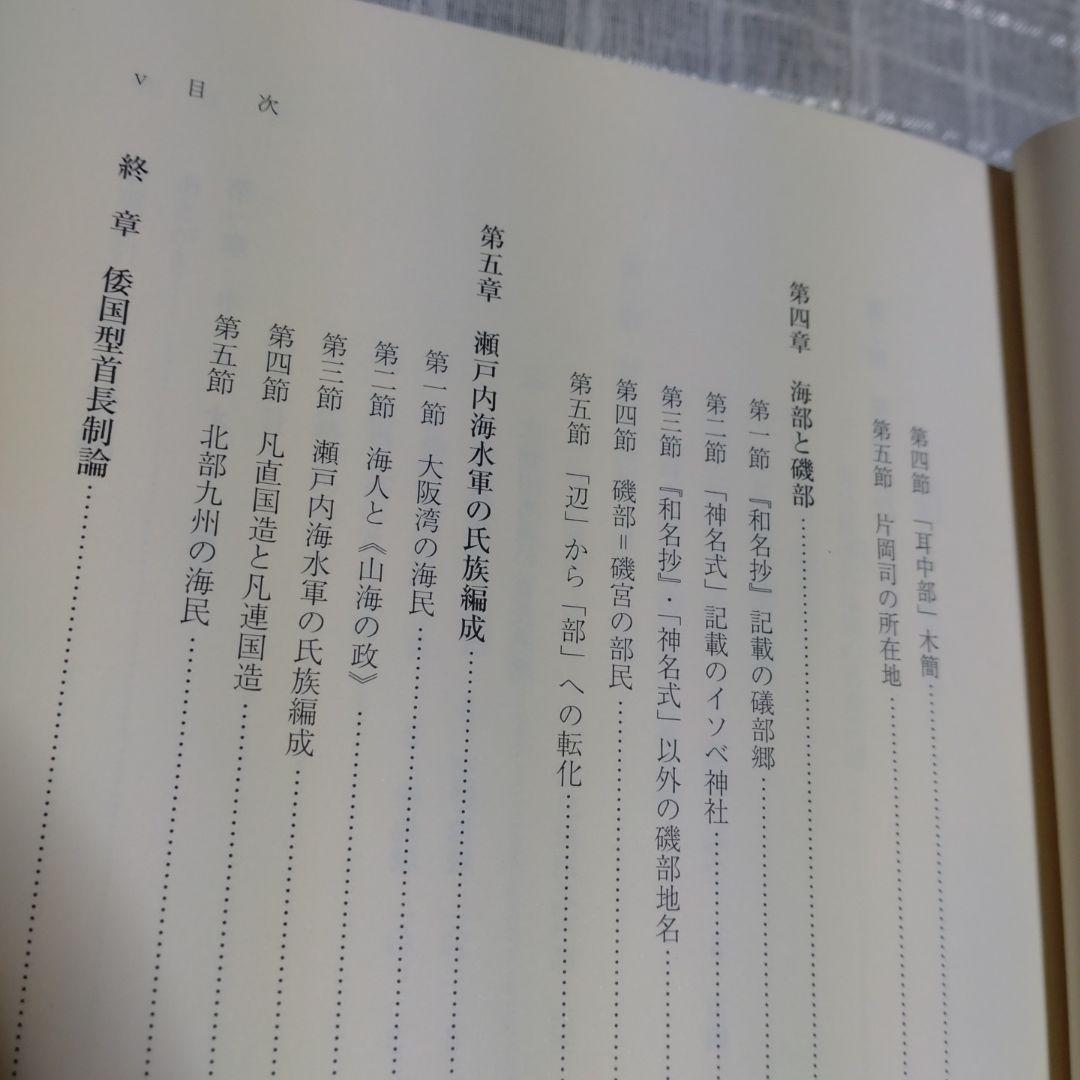 第四節 「耳中部」木簡……
第五節 片岡司の所在地……
第四章 海部と磯部……
第一節 『和名抄』記載の礒部郷……
第二節 「神名式」記載のイソベ神社……
第三節 『和名抄』・「神名式」以外の磯部地名……
第四節 磯部=磯宮の部民……
第五節 「辺」から「部」への転化……
第五章 瀬戸内海水軍の氏族編成……
第一節 大阪湾の海民……
第二節 海人と《山海の政》……
第三節 瀬戸内海水軍の氏族編成……
第四節 凡直国造と凡連国造……
第五節 北部九州の海民……
終章 倭国型首長制論……
v 目次